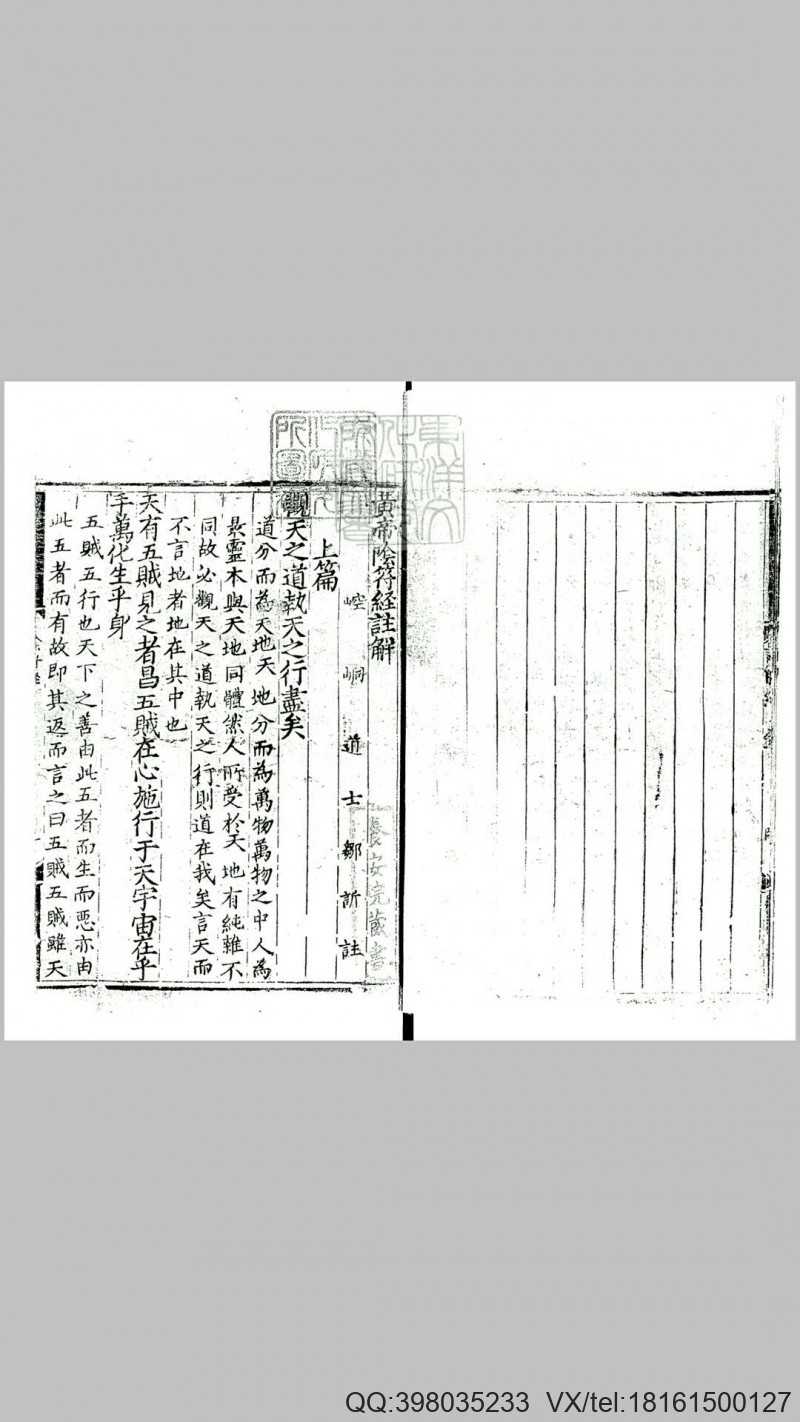 黃帝陰符經註解
崆峒道士鄒訢註
上篇
觀天之道執天之行盡矣
道分而為天地天地分而為萬物萬物之中人為
最靈本與天地同體然人所受於天地有純雜不
同故必觀天之道執天之行則道在我矣言天而
不言地者地在其中也
天有五賊見之者昌五賊在心施行于天宇宙在乎
手萬化生乎身
五賊五行也天下之善由此五者而生而惡亦由
此五者而有故即其返而言之曰五賊五賊雖天
QQ:398035233 VX/tel:18161500127